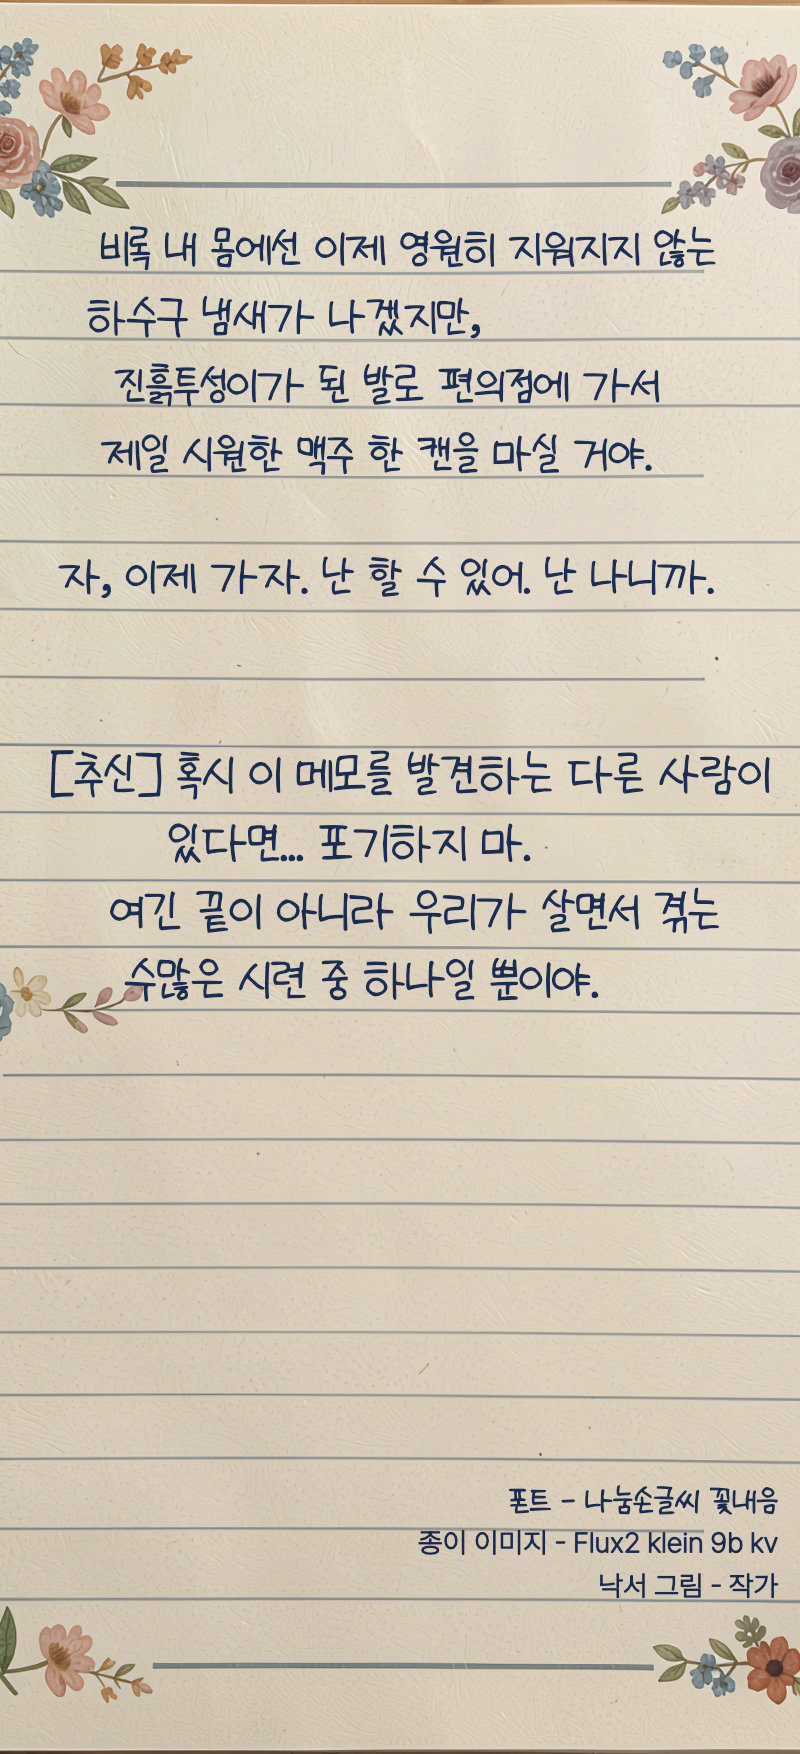 비록 내 몸에선 이제 영원히 지워지지 않는
하수구 냄새가 나겠지만,
진흙투성이가 된 발로 편의점에 가서
제일 시원한 맥주 한 캔을 마실 거야.
자, 이제 가자. 난 할 수 있어. 난 나니까.
[추신] 혹시 이 메모를 발견하는 다른 사람이
있다면... 포기하지 마.
여긴 끝이 아니라 우리가 살면서 겪는
수많은 시련 중 하나일 뿐이야.
폰트 - 나눔손글씨 꽃내음
종이 이미지 - Flux2 klein 9b kv
낙서 그림 - 작가